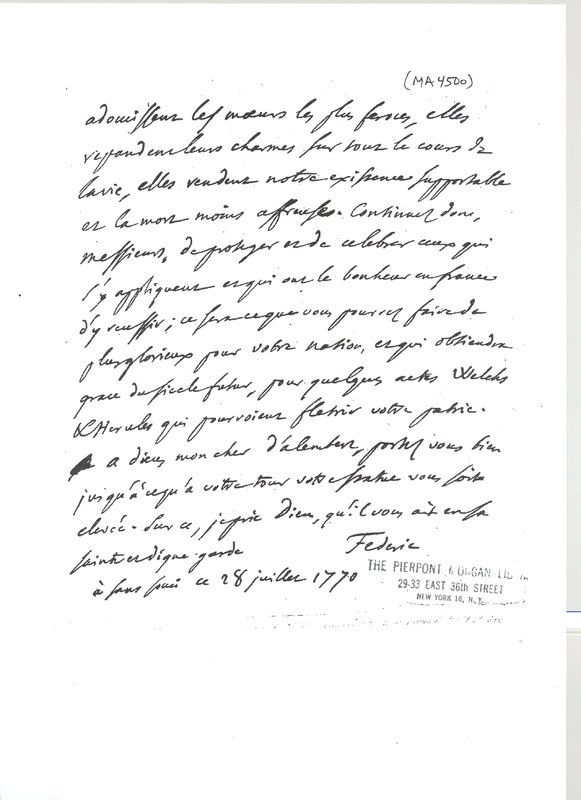 (MA 4500)
adoucissent les mœurs les plus feroces, elles
repandent leurs charmes sur tout le cours de
la vie, elles rendent notre existence supportable
et la mort moins affreuse. Continuez donc,
messieurs, de proteger et de celebrer ceux qui
s'y appliquent et qui ont le bonheur en france
d'y reussir; ce sera ce que vous pourrez faire de
plus glorieux pour votre nation, et qui obtiendra
grace du siecle futur, pour quelques autres Welchs
& Herules qui pourroient fletrir votre patrie.
a dieu mon cher d'alembert, portez vous bien
jusqu'à ce qu'a votre tour votre statue vous soit
elevée. Sur ce, je prie Dieu, qu'il vous ait en sa
sainte et digne garde
Federic
à sans souci ce 28 juillet 1770
THE PIERPONT MORGAN
29-33 EAST 36th STREET
NEW YORK 16, N.Y.